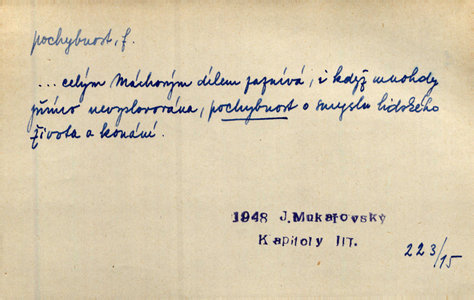 pochybnost, f.
... celým Máchovým dílem zaznívá, i když mnohdy
přímo nevyslovována, pochybnost o smyslu lidského
života a konání.
1948 J.Mukařovský
Kapitoly III.
223/15